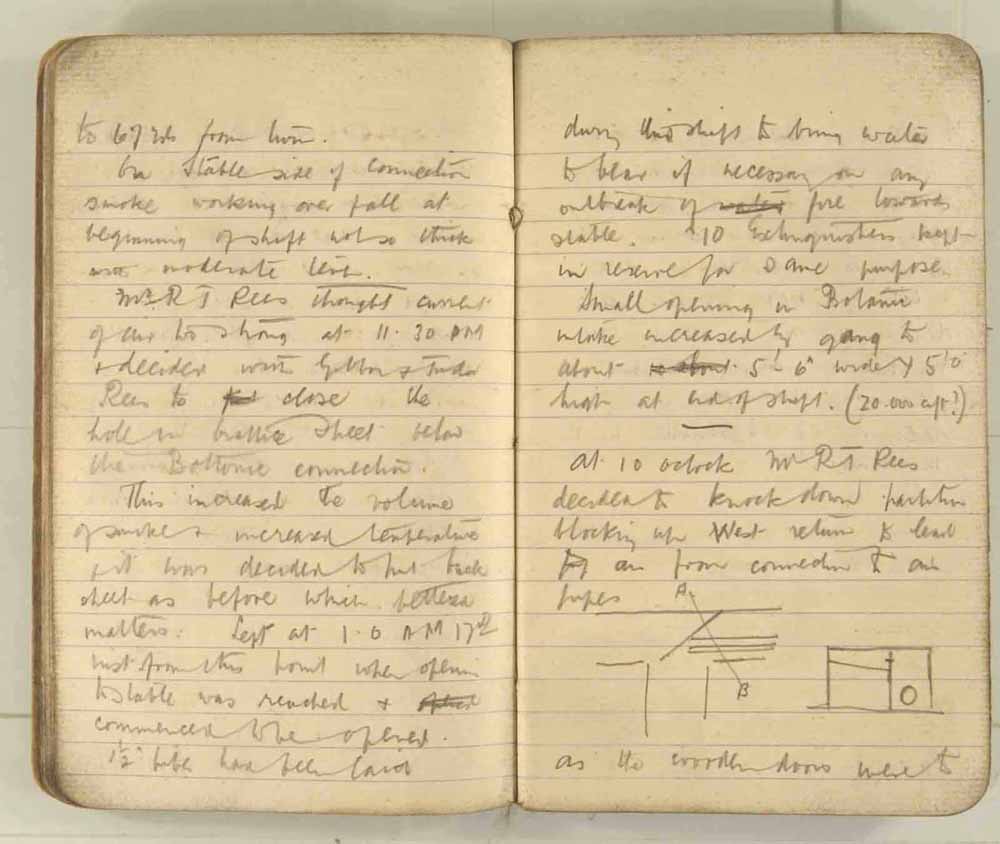 to 67 yds from
On Stable side of connection
smoke working over fall at
beginning of shift not so thick
moderate
Mr R T Rees thought current
of air too strong at 11.30 PM
+ decided with & Tudor
Rees to close the
hole in brattice sheet below
the Bottonic connection.
This increased the volume
of smoke & increased temperature
& it was decided to put back
sheet as before which
matters. Left at 1.0 AM 17th
inst from this point when opening
to stable was reached &
commenced to be opened.
1½" pipes had been laid
during this shift to bring water
to bear if necessary on any
outbreak of water fire towards
stable. 10 Extinguishers kept
in reserve for same purpose.
Small opening in Botanic
intake increased by gang to
about 5' 6" wide x 5' 0
high at end of shift. (20.000 c/ft?)
At 10 oclock Mr R T Rees
decided to knock down partition
blocking up West return to lead
air from connection to air
pipes
A.
B
as the wooden doors were to